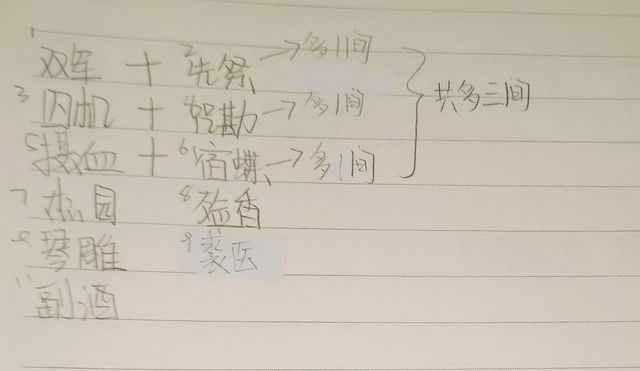 1双军 + 2先祭→多1间
3囚机 + 4贸勘→多1间 共多三间
5摄血 + 6宿蝶→多1间
7杰园 8病香
琴雕 9裘医
11副酒